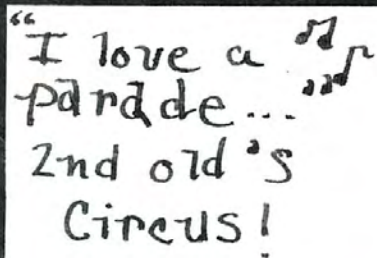 "I love a ♫♪
parade... "
2nd old's
Circus!